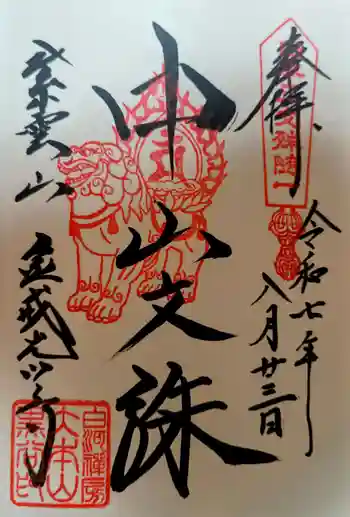 奉拝
令和七年
八月廿三日
中山文殊
紫雲山
金戒光明寺
白河禅房
大本山